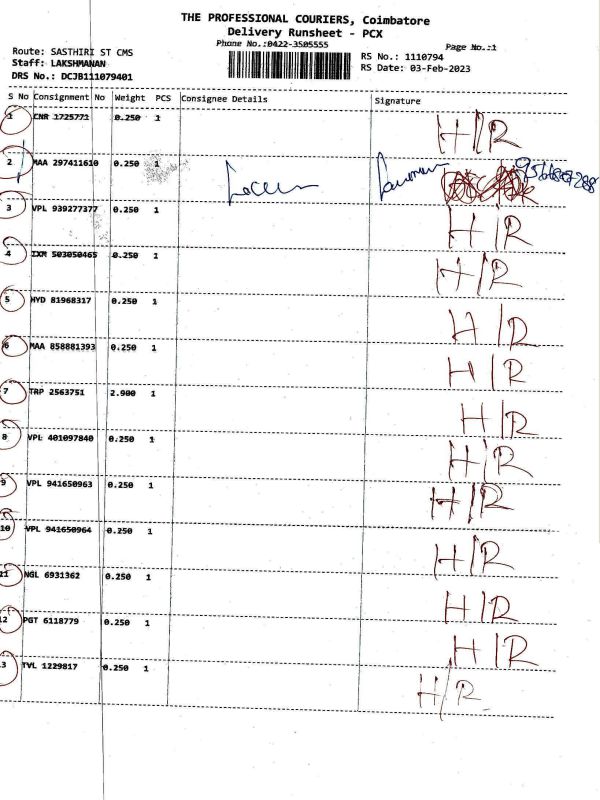 THE PROFESSIONAL COURIERS, Coimbatore
Delivery Runsheet - PCX
Phone No.:0422-3505555
Page No.:1
Route: SASTHIRI ST CMS
Staff: LAKSHMANAN
DRS No.: DCJB111079401
RS No.: 1110794
RS Date: 03-Feb-2023
S No Consignment No Weight PCS Consignee Details Signature
1 CNR 1725771 0.250 1 H/R
2 MAA 297411610 0.250 1
3 VPL 939277377 0.250 1 H/R
4 IXM 503050465 0.250 1 H/R
5 HYD 81968317 0.250 1 H/R
6 MAA 858881393 0.250 1 H/R
7 TRP 2563751 2.900 1 H/R
8 VPL 401097840 0.250 1 H/R
9 VPL 941650963 0.250 1 H/R
10 VPL 941650964 0.250 1 H/R
11 NGL 6931362 0.250 1 H/R
12 PGT 6118779 0.250 1 H/R
13 TVL 1229817 0.250 1 H/R